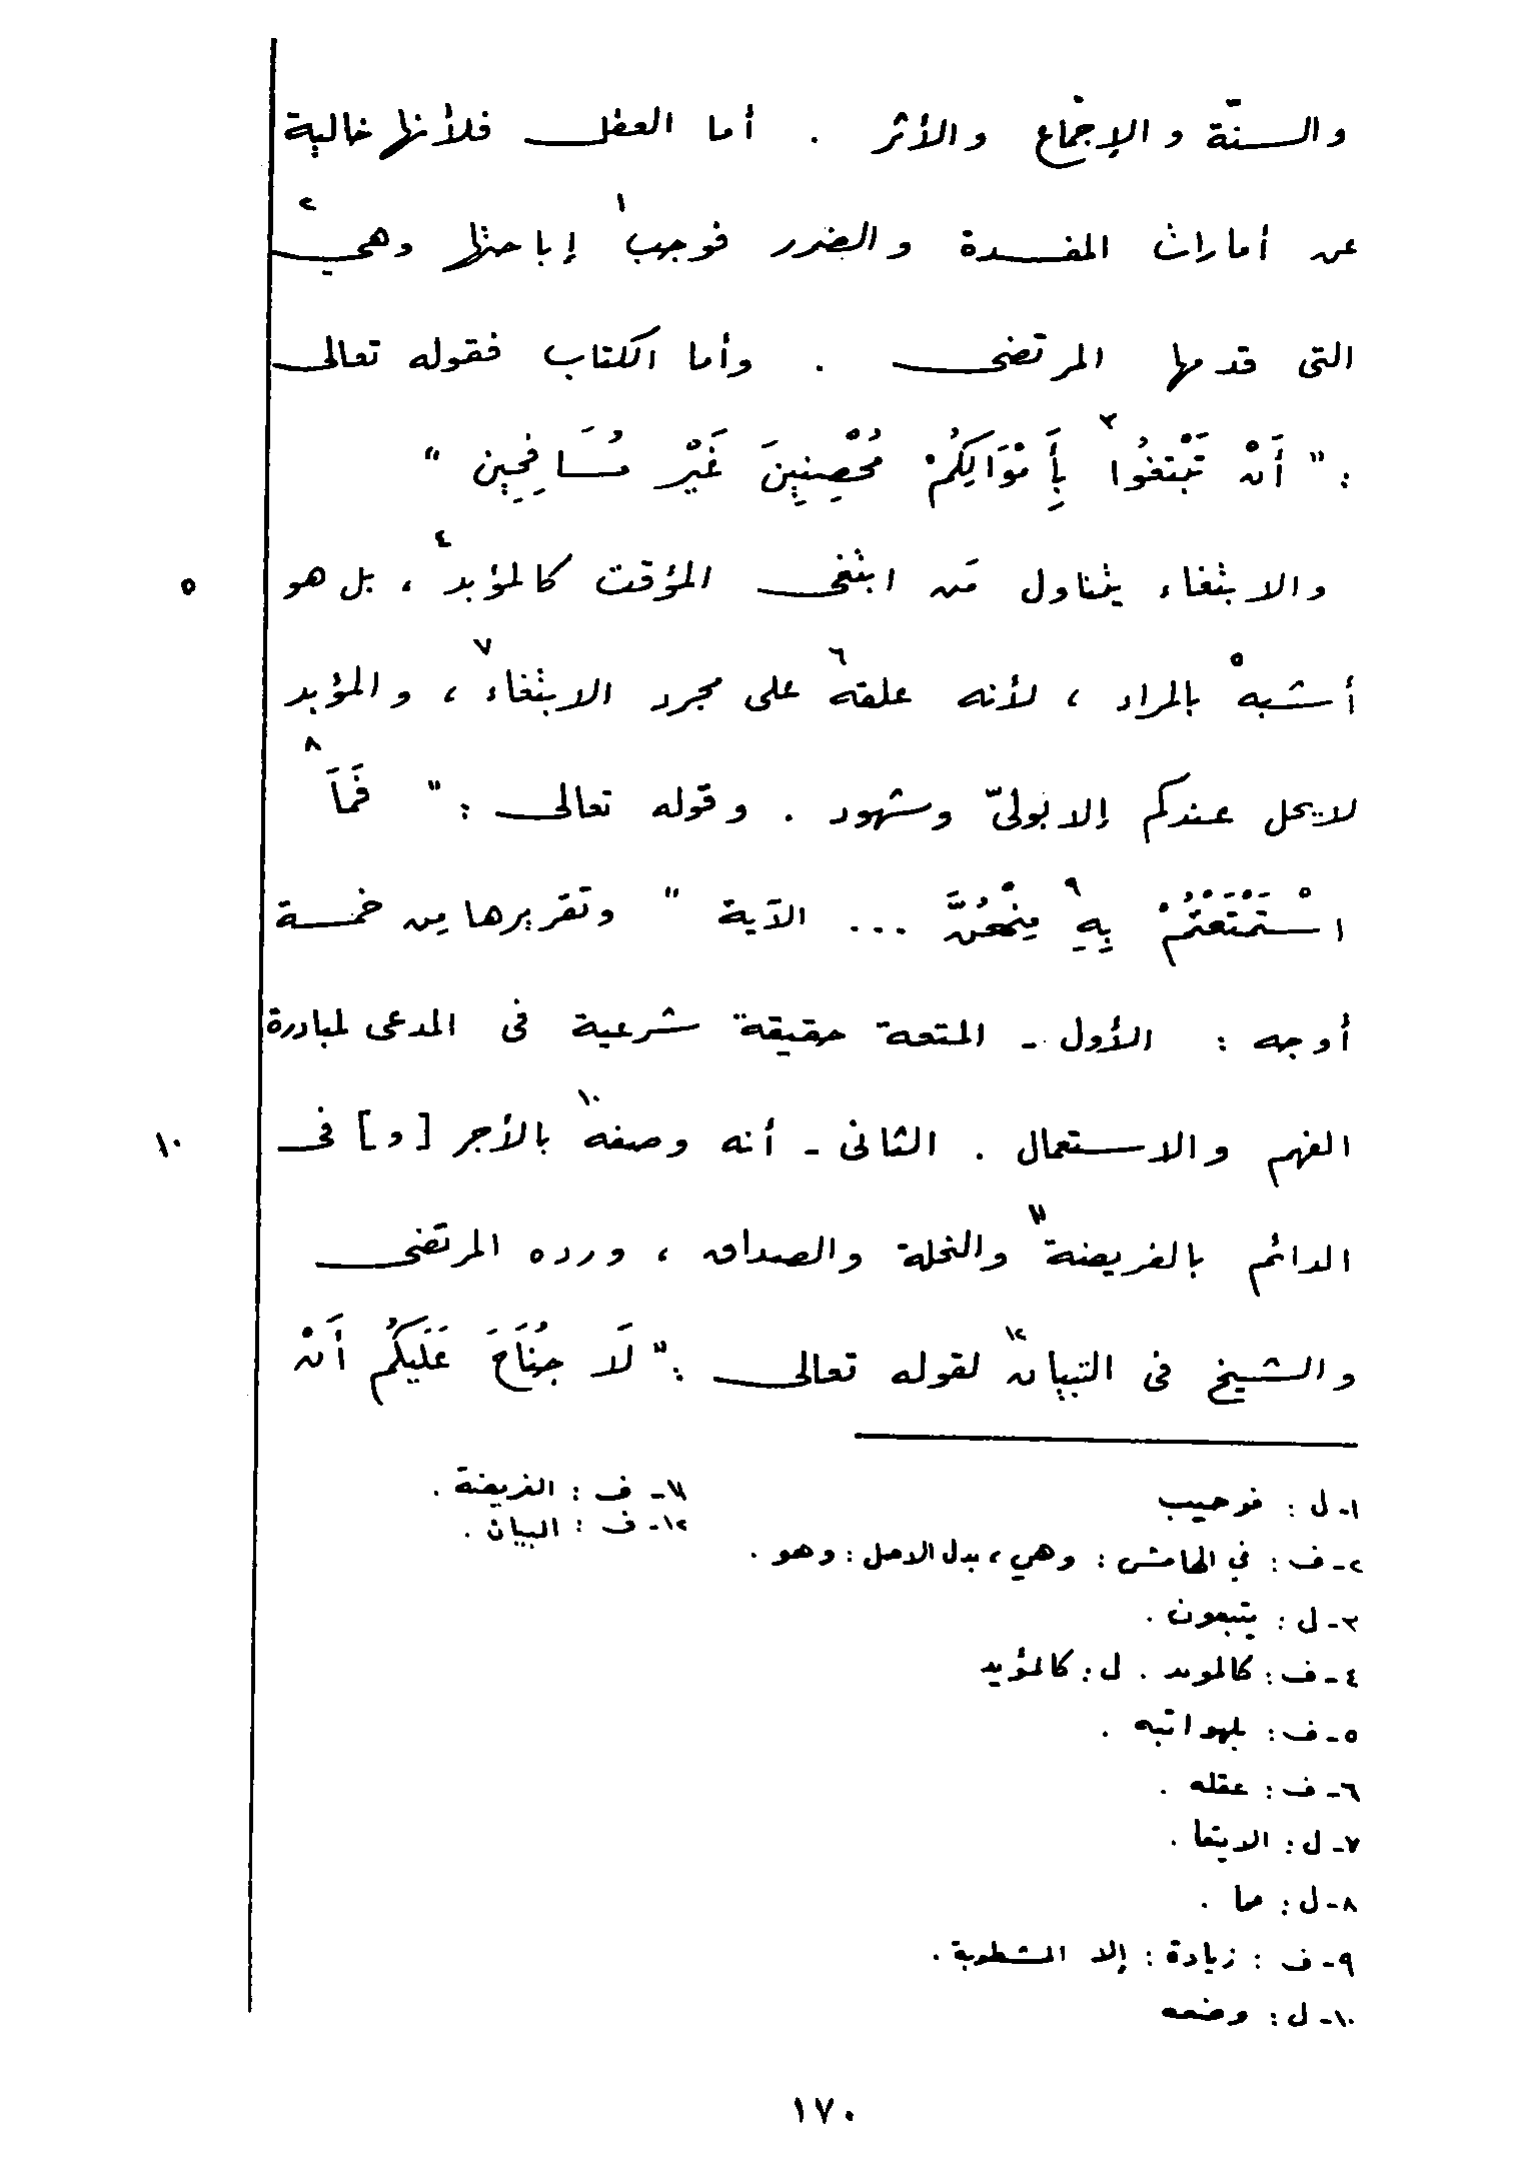 والسنّة والإجماع والأثر . أما العقل فلأنها خالية
عن أمارات المفسدة والضرر فوجب١ إباحتها وهي٢
التى قدمها المرتضى . وأما الكتاب فقوله تعالى
: " أَنْ تَبْتَغُوا٣ بِأَمْوَالِكُمْ مُحْصِنِينَ غَيْرَ مُسَافِحِين "
والابتغاء يتناول مَن ابتغى المؤقت كالمؤبد٤ ، بل هو
٥
أشبه٥ بالمراد ، لأنه علقه٦ على مجرد الابتغاء٧ ، والمؤبد
لايحل عندكم إلا بولىّ وشهود . وقوله تعالى : " فَمَا٨
اسْتَمْتَعْتُمْ بِهِ٩ مِنْهُنَّ ... الآية " وتقريرها مِن خمسة
أوجه : الأول - المتعة حقيقة شرعية فى المدعى لمبادرة
الفهم والاستعمال . الثانى - أنه وصفه١٠ بالأجر [و] فى
١٠
الدائم بالفريضة١١ والنحلة والصداق ، ورده المرتضى
والشيخ فى التبيان١٢ لقوله تعالى : " لَا جُنَاحَ عَلَيكُم أَنْ
١- ل : فوحيب
٢- ف : في الهامش : وهي ، بدل الاصل : وهو .
٣- ل : يتبعون .
٤- ف : كالموىد . ل : كالمؤيد
٥- ف : بلهواتبه .
٦- ف : عقله .
٧- ل : الايتعا .
٨- ل : مما .
٩- ف : زيادة : إلا المشطوبة .
١٠- ل : وضعه
١١- ف : الفريضة .
١٢- ف : البيان .
١٧٠